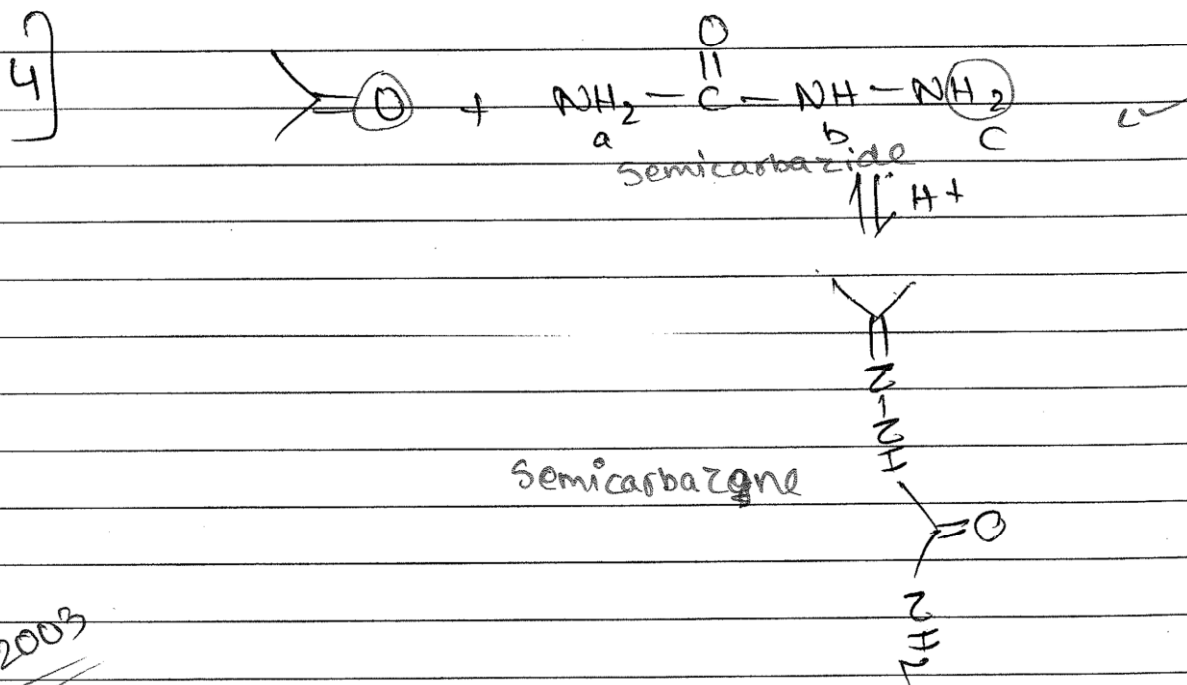 4]
O
O + NH2 - C - NH - NH2
a b C
Semicarbazide
H+
N-NH
Semicarbazone
O
NH2
2003